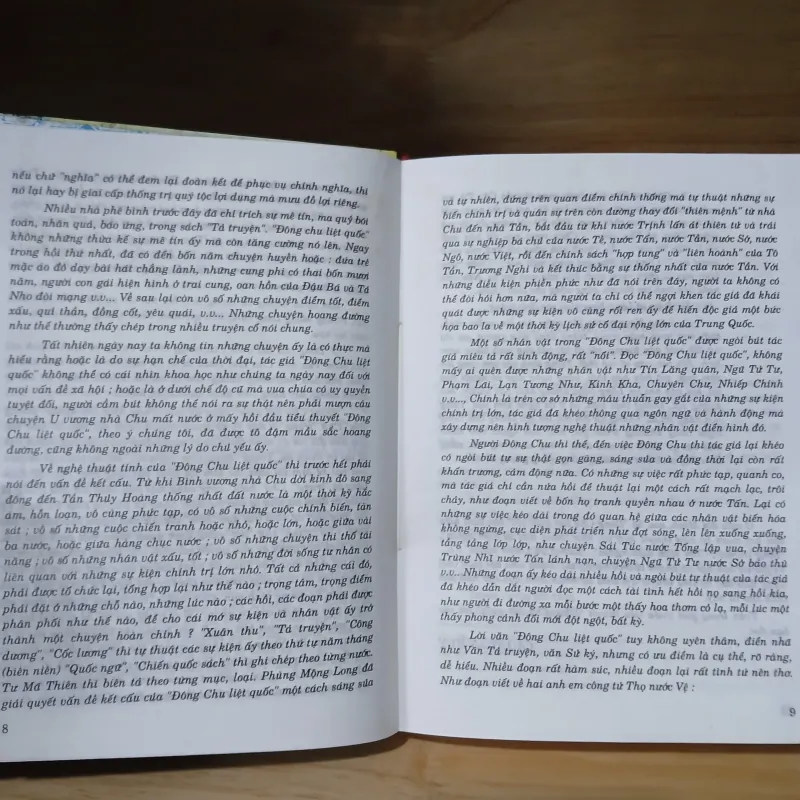 nếu chữ "nghĩa" có thể đem lại đoàn kết để phục vụ chính nghĩa, thì
nó lại hay bị giai cấp thống trị quý tộc lợi dụng mà mưu đồ lợi riêng.
Nhiều nhà phê bình trước đây đã chỉ trích sự mê tín, ma quỷ bói
toán, nhân quả, báo ứng, trong sách "Tả truyện". "Đông chu liệt quốc"
không những thừa kế sự mê tín ấy mà còn tăng cường nó lên. Ngay
trong hồi thứ nhất, đã có đến bốn năm chuyện huyền hoặc : đứa trẻ
mặc áo đỏ dạy bài hát chẳng lành, những cung phi có thai bốn mươi
năm, người con gái hiện hình ở trai cung, oan hồn của Đậu Bá và Tả
Nho đòi mạng v.v... Về sau lại còn vô số những chuyện điềm tốt, điềm
xấu, quỉ thần, đồng cốt, yêu quái, v.v... Những chuyện hoang đường
như thế thường thấy chép trong nhiều truyện cổ nói chung.
Tất nhiên ngày nay ta không tin những chuyện ấy là có thực mà
hiểu rằng hoặc là do sự hạn chế của thời đại, tác giả "Đông Chu liệt
quốc" không thể có cái nhìn khoa học như chúng ta ngày nay đối với
mọi vấn đề xã hội ; hoặc là ở dưới chế độ cũ mà vua chúa có uy quyền
tuyệt đối, người cầm bút không thể nói ra sự thật nên phải mượn câu
chuyện U vương nhà Chu mất nước ở mấy hồi đầu tiểu thuyết "Đông
Chu liệt quốc", theo ý chúng tôi, đã được tô đậm mầu sắc hoang
đường, cũng không ngoài những lý do chủ yếu ấy.
Về nghệ thuật tính của "Đông Chu liệt quốc" thì trước hết phải
nói đến vấn đề kết cấu. Từ khi Bình vương nhà Chu dời kinh đô sang
đông đến Tần Thủy Hoàng thống nhất đất nước là một thời kỳ hắc
ám, hỗn loạn, vô cùng phức tạp, có vô số những cuộc chinh biến, tàn
sát ; vô số những cuộc chiến tranh hoặc nhỏ, hoặc lớn, hoặc giữa vài
ba nước, hoặc giữa hàng chục nước ; vô số những chuyện thi thố tài
năng ; vô số những nhân vật xấu, tốt ; vô số những đời sống tư nhân có
liên quan với những sự kiện chính trị lớn nhỏ. Tất cả những cái đó,
phải được tổ chức lại, tổng hợp lại như thế nào ; trọng tâm, trọng điểm
phải đặt ở những chỗ nào, những lúc nào ; các hồi, các đoạn phải được
phân phối như thế nào, để cho cái mớ sự kiện và nhân vật ấy trở
thành một chuyện hoàn chỉnh ? "Xuân thu", "Tả truyện", "Công
dương", "Cốc lương" thì tự thuật các sự kiện ấy theo thứ tự năm tháng
(biên niên) "Quốc ngữ", "Chiến quốc sách" thì ghi chép theo từng nước.
Tư Mã Thiên thì biên tả theo từng mục, loại. Phùng Mộng Long đã
giải quyết vấn đề kết cấu của "Đông Chu liệt quốc" một cách sáng sủa
8
và tự nhiên, đứng trên quan điểm chính thống mà tự thuật những sự
biến chính trị và quân sự trên con đường thay đổi "thiên mệnh" từ nhà
Chu đến nhà Tần, bắt đầu từ khi nước Trịnh lấn át thiên tử và trải
qua sự nghiệp bá chủ của nước Tề, nước Tấn, nước Tần, nước Sở, nước
Ngô, nước Việt, rồi đến chính sách "hợp tung" và "liên hoành" của Tô
Tần, Trương Nghi và kết thúc bằng sự thống nhất của nước Tần. Với
những điều kiện phiền phức như đã nói trên đây, người ta không có
thể đòi hỏi hơn nữa, mà người ta chỉ có thể ngợi khen tác giả đã khái
quát được những sự kiện vô cùng rối ren ấy để hiến độc giả một bức
họa bao la về một thời kỳ lịch sử cổ đại rộng lớn của Trung Quốc.
Một số nhân vật trong "Đông Chu liệt quốc" được ngòi bút tác
giả miêu tả rất sinh động, rất "nổi". Đọc "Đông Chu liệt quốc", không
mấy ai quên được những nhân vật như Tín Lăng quân, Ngũ Tử Tư,
Phạm Lãi, Lạn Tương Như, Kinh Kha, Chuyên Chư, Nhiếp Chính
v.v..., Chính là trên cơ sở những mâu thuẫn gay gắt của những sự kiện
chính trị lớn, tác giả đã khéo thông qua ngôn ngữ và hành động mà
xây dựng nên hình tượng nghệ thuật những nhân vật điển hình đó.
Người Đông Chu thì thế, đến việc Đông Chu thì tác giả lại khéo
có ngòi bút tự sự thật gọn gàng, sáng sủa và đồng thời lại còn rất
khẩn trương, cảm động nữa. Có những sự việc rất phức tạp, quanh co,
mà tác giả chỉ cần nửa hồi để thuật lại một cách rất mạch lạc, trôi
chảy, như đoạn viết về bốn họ tranh quyền nhau ở nước Tấn. Lại có
những sự việc kéo dài trong đó quan hệ giữa các nhân vật biến hóa
không ngừng, cục diện phát triển như đợt sóng, lên lên xuống xuống,
tầng tầng lớp lớp, như chuyện Sái Túc nước Tống lập vua, chuyện
Trùng Nhĩ nước Tấn lánh nạn, chuyện Ngũ Tử Tư nước Sở báo thù
v.v.. Những đoạn ấy kéo dài nhiều hồi và ngòi bút tự thuật của tác giả
đã khéo dẫn dắt người đọc một cách tài tình hết hồi nọ sang hồi kia,
như người đi đường xa mỗi bước một thấy hoa thơm cỏ lạ, mỗi lúc một
thấy phong cảnh đổi mới đột ngột, bất kỳ.
Lời văn "Đông Chu liệt quốc" tuy không uyên thâm, điển nhã
như Văn Tả truyện, văn Sử ký, nhưng có ưu điểm là cụ thể, rõ ràng,
dễ hiểu. Nhiều đoạn rất hàm súc, nhiều đoạn lại rất tình tứ nên thơ.
Như đoạn viết về hai anh em công tử Thọ nước Vệ :
9